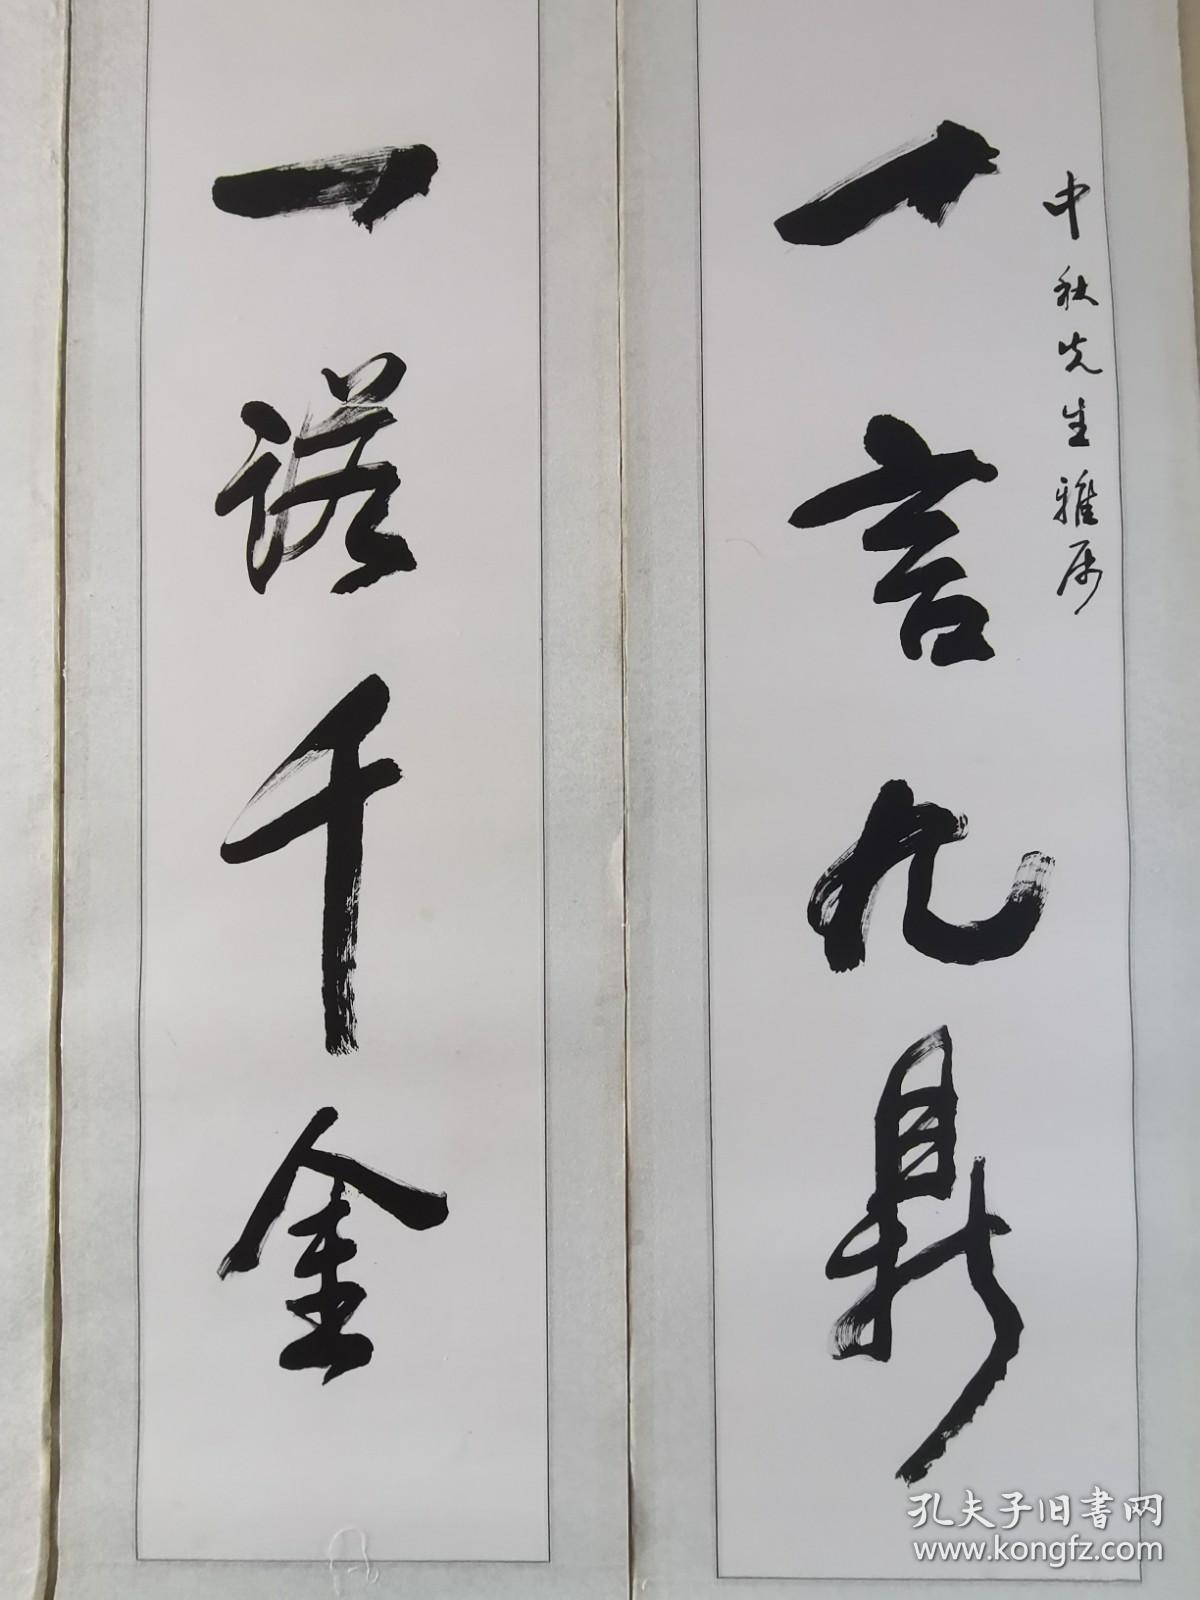 中秋先生雅属
一言九鼎
一诺千金
孔夫子旧书网
www.kongfz.com